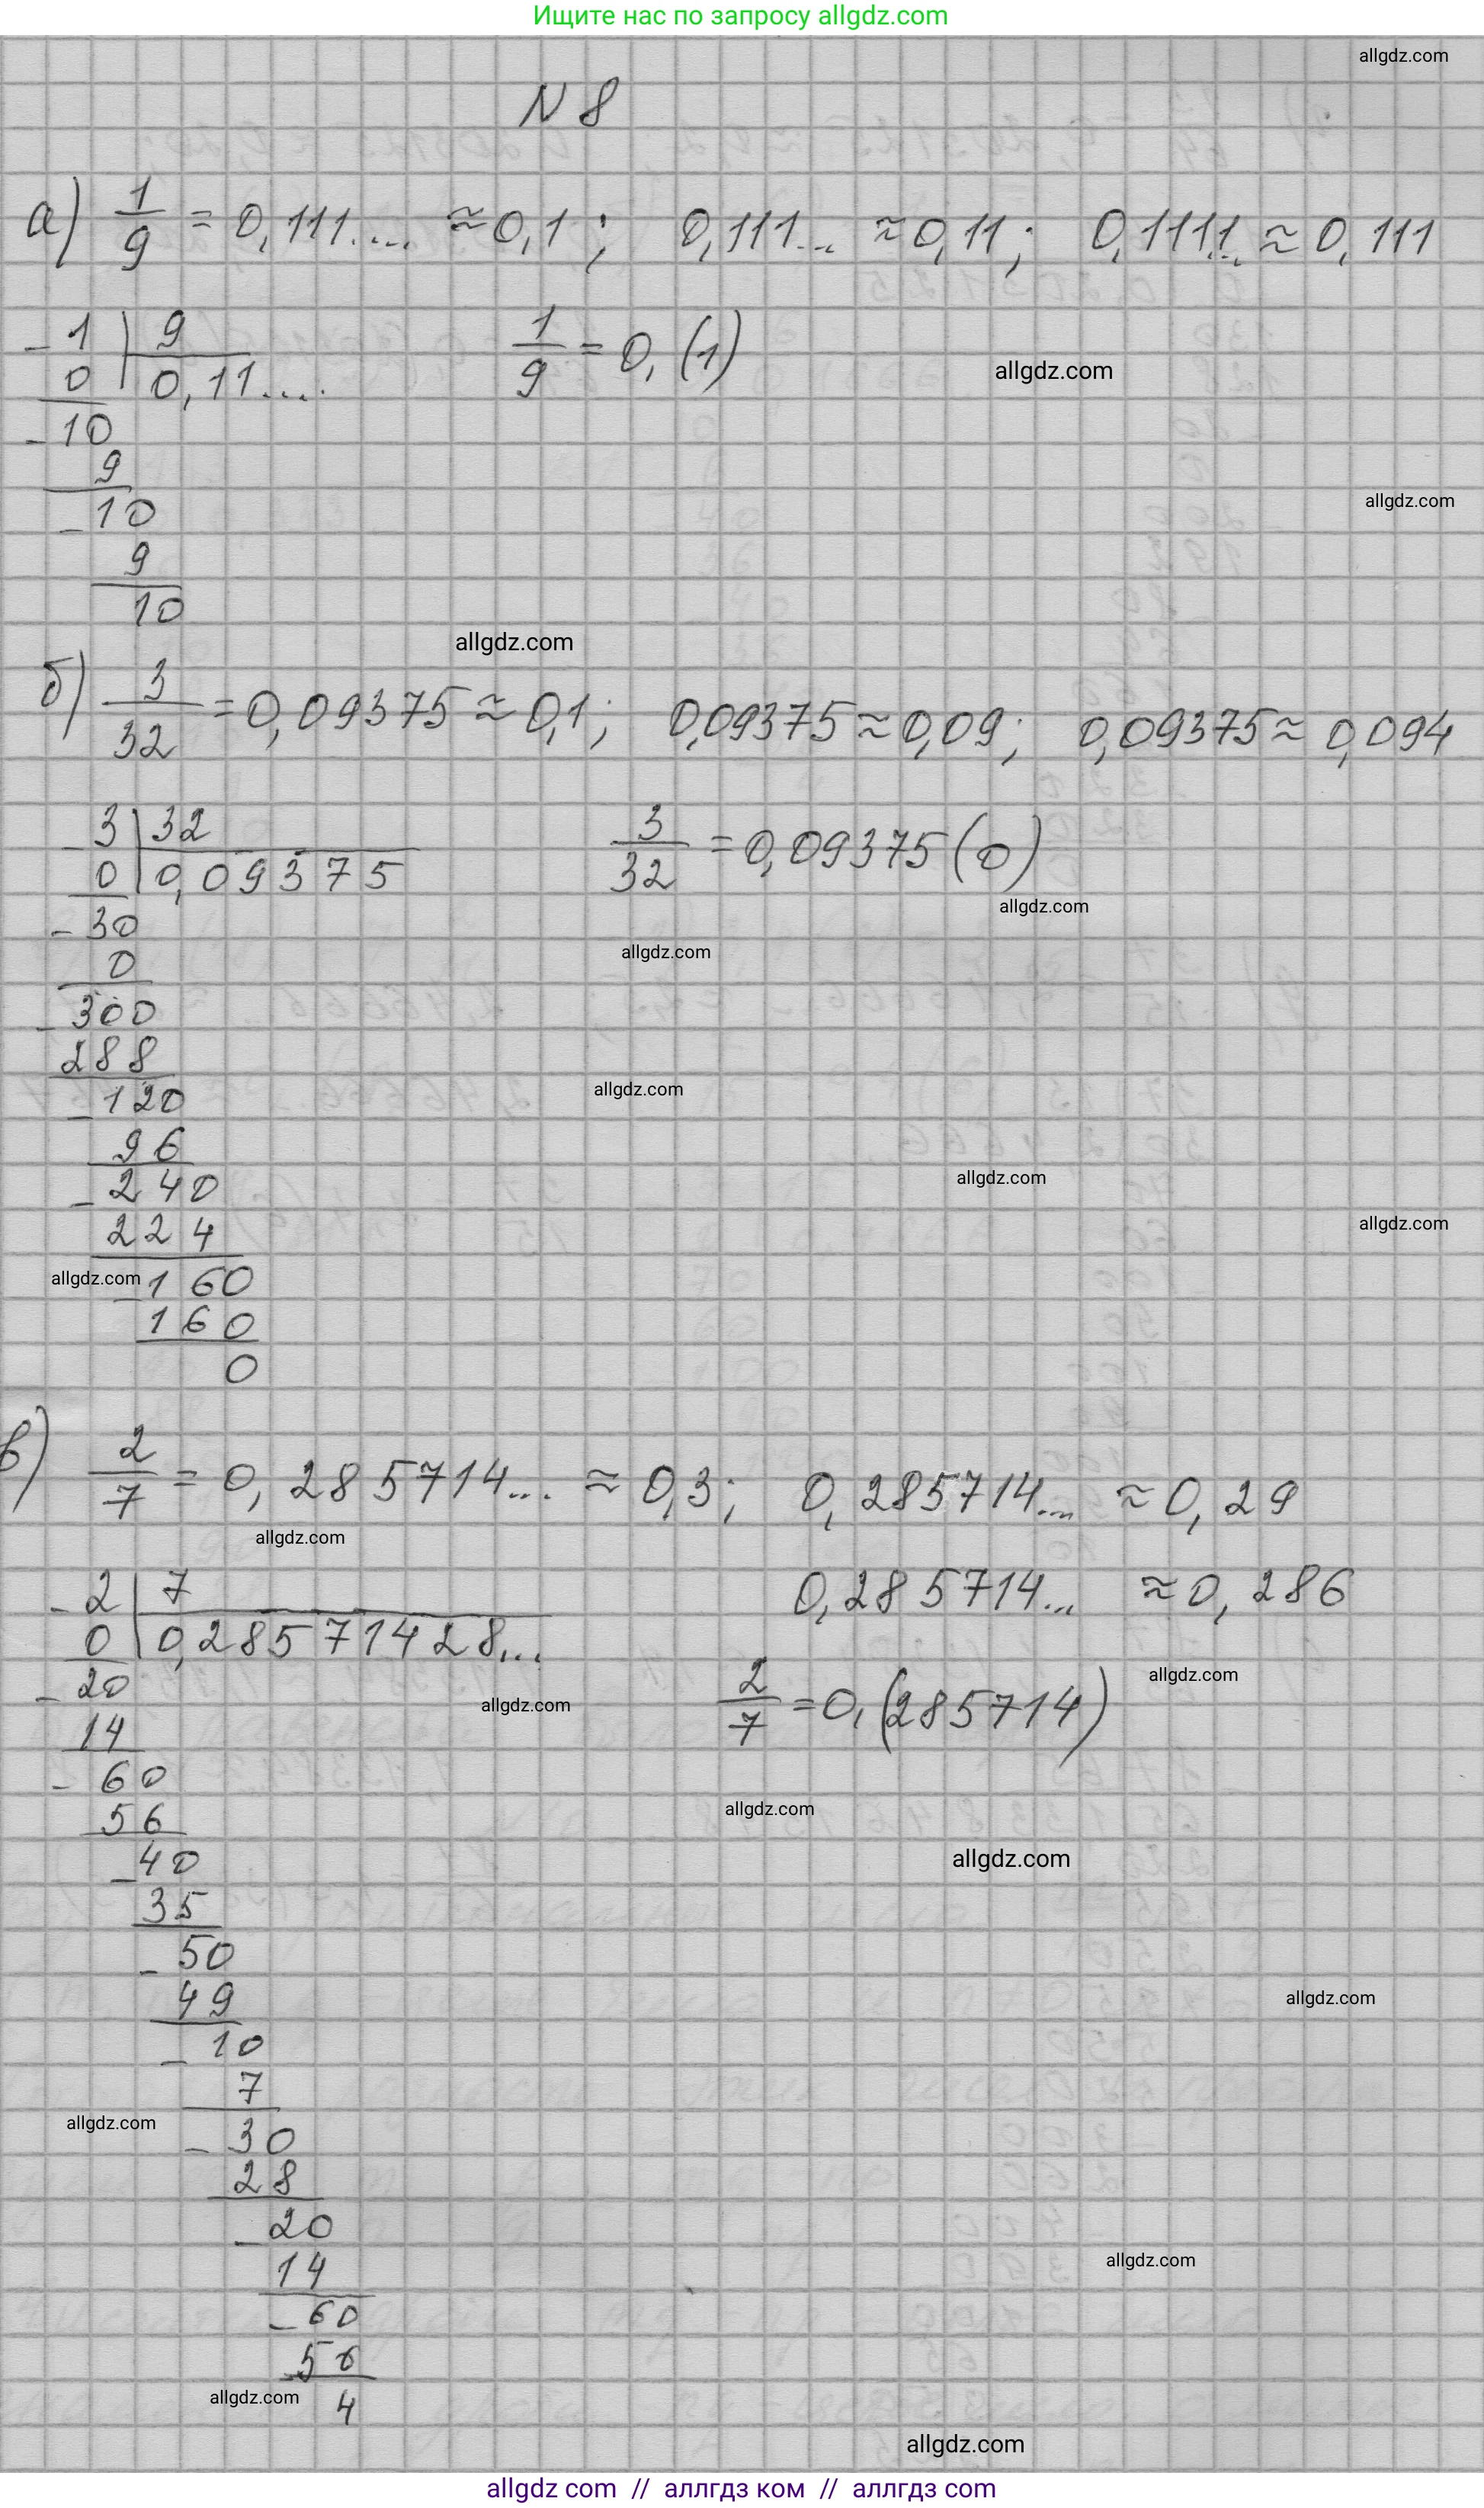 Ищите нас по запросу allgdz.com
allgdz.com
N 8
а) 1/9 = 0,111.... ≈ 0,1; 0,111... ≈ 0,11; 0,1111... ≈ 0,111
- 1 | 9
0 | 0,11....
1/9 = 0,(1)
allgdz.com
- 10
9
allgdz.com
- 10
9
10
allgdz.com
б) 3/32 = 0,09375 ≈ 0,1; 0,09375 ≈ 0,09; 0,09375 ≈ 0,094
- 3 | 32
0 | 0,09375
3/32 = 0,09375(0)
allgdz.com
- 30
allgdz.com
0
- 300
288
allgdz.com
- 120
96
allgdz.com
- 240
224
allgdz.com
allgdz.com
- 160
160
0
в) 2/7 = 0,285714... ≈ 0,3; 0,285714... ≈ 0,29
allgdz.com
0,285714... ≈ 0,286
- 2 | 7
0 | 0,28571428...
- 20
allgdz.com
allgdz.com
2/7 = 0,(285714)
14
- 60
56
allgdz.com
allgdz.com
- 40
35
- 50
49
allgdz.com
- 10
7
allgdz.com
- 30
28
- 20
14
allgdz.com
- 60
56
allgdz.com
4
allgdz.com
allgdz com // аллгдз ком // аллгдз com